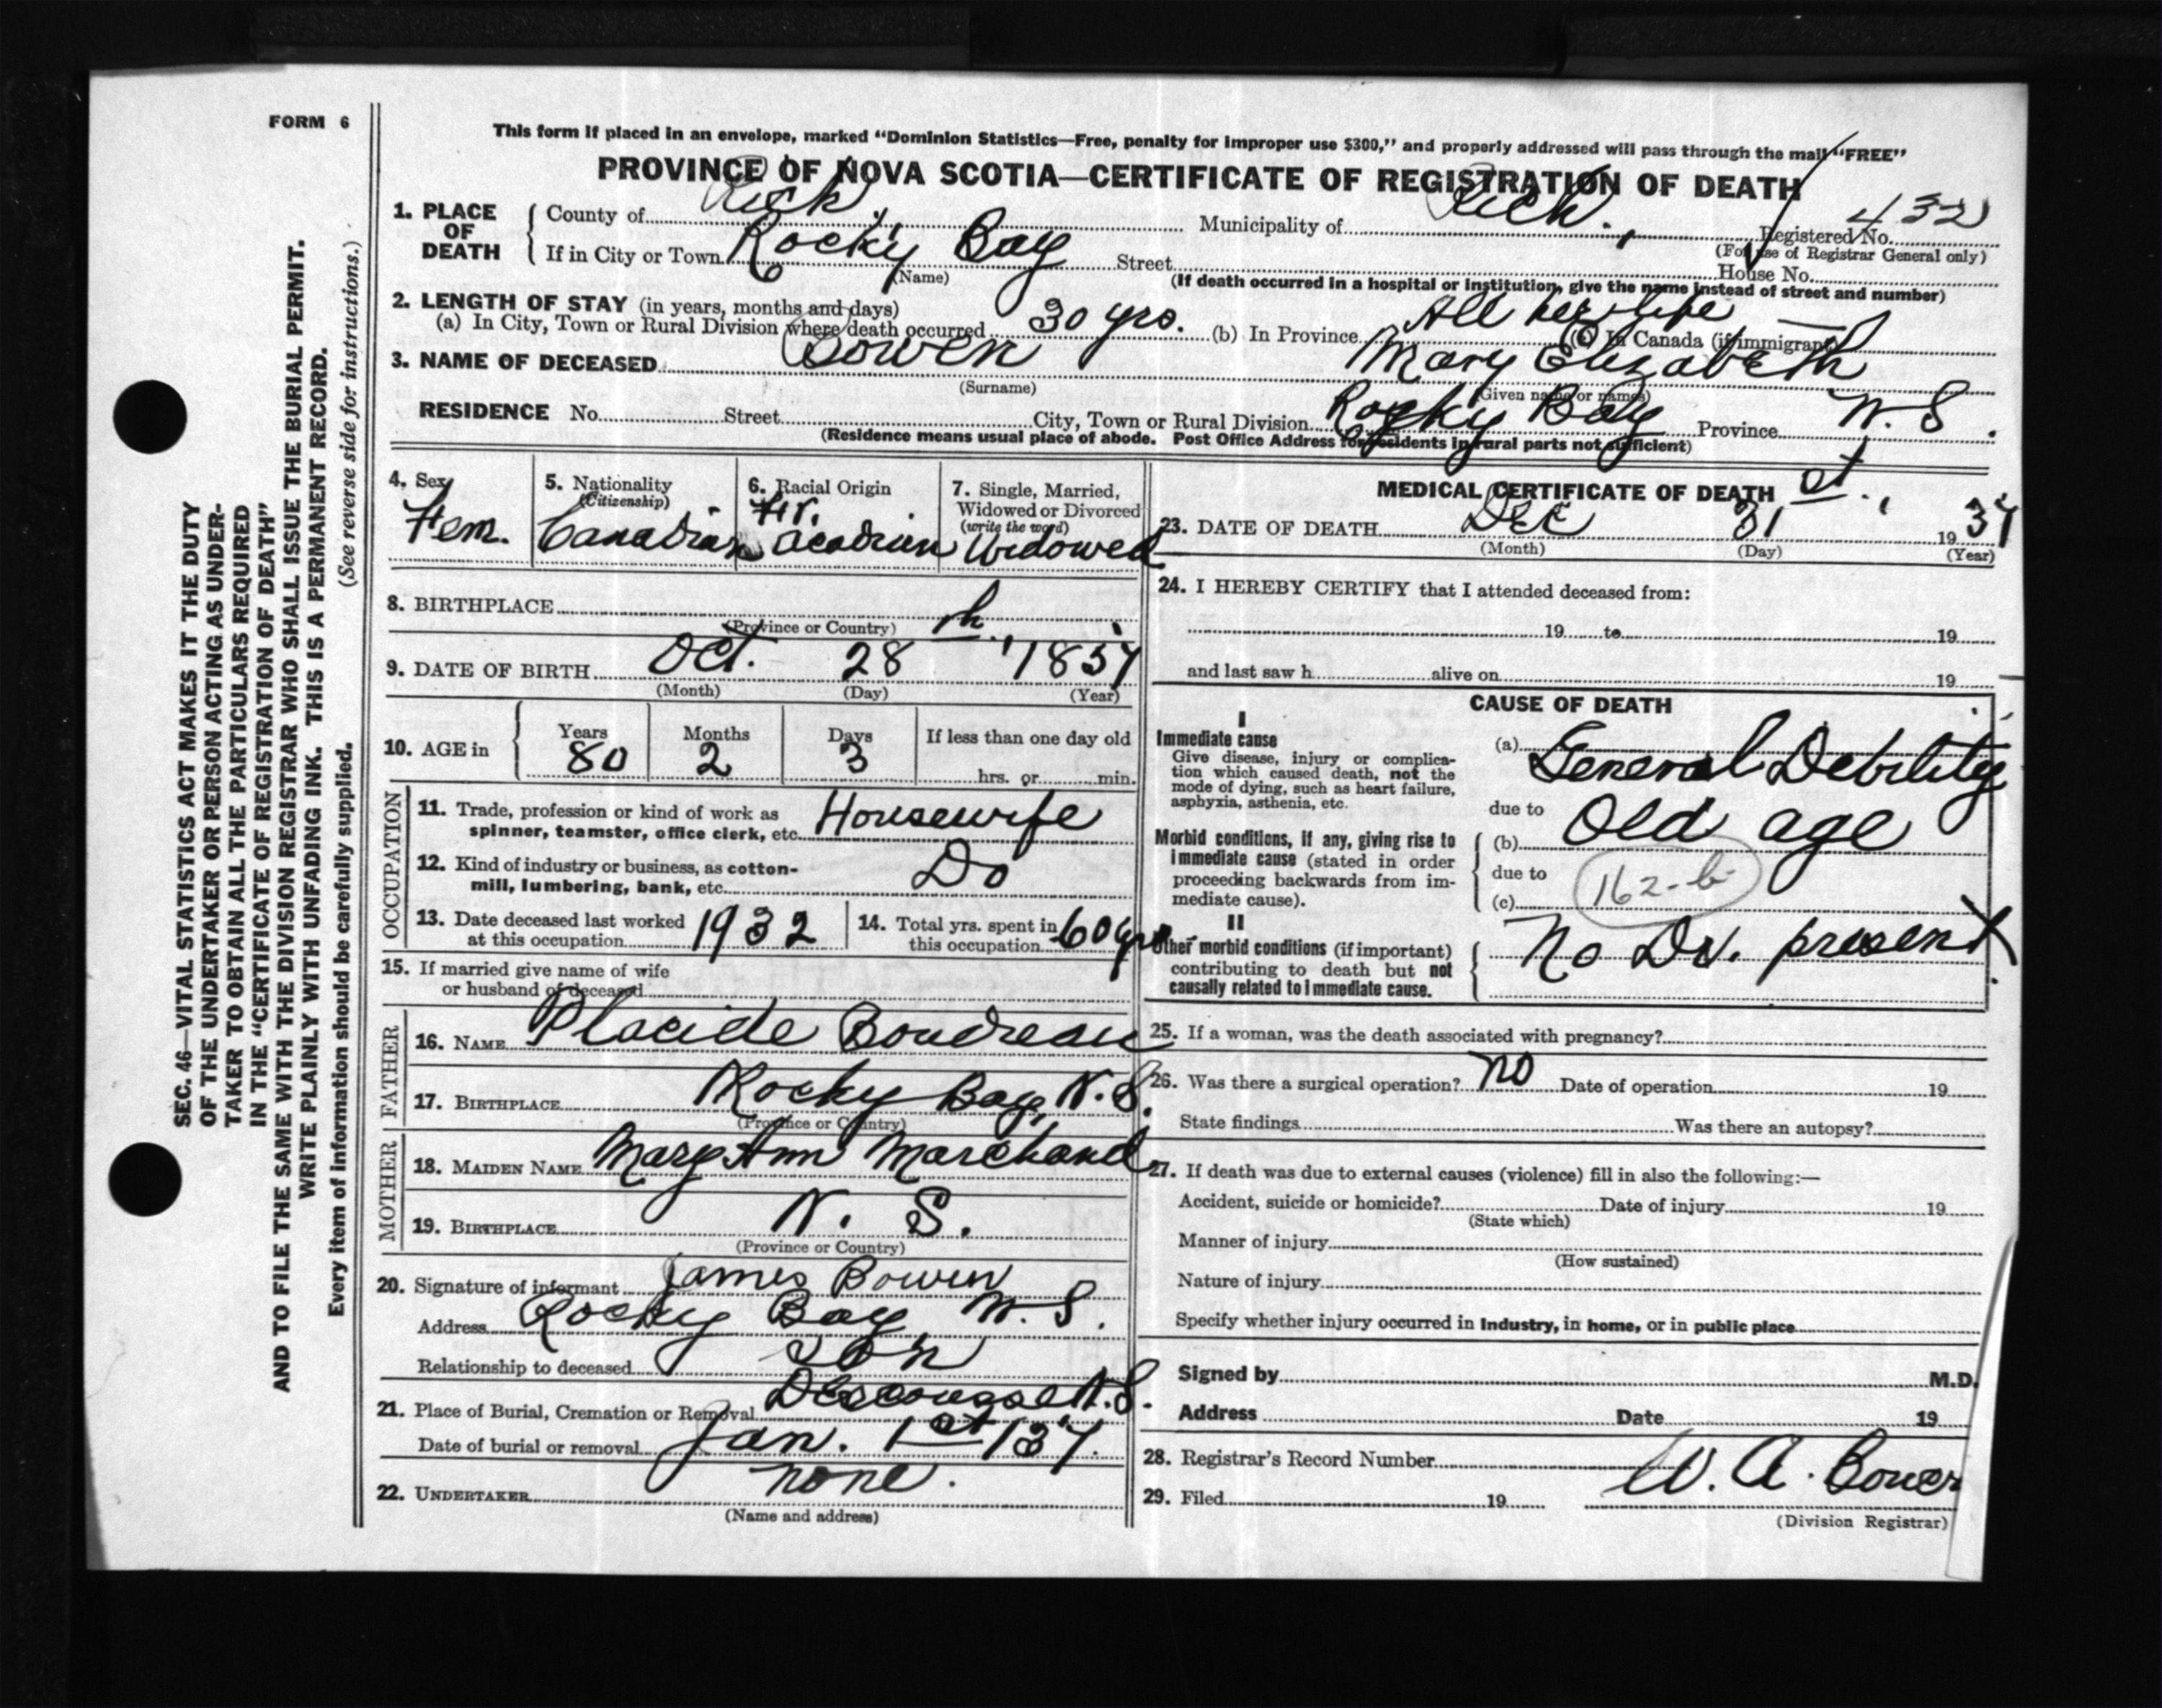 FORM 6
This form if placed in an envelope, marked "Dominion Statistics—Free, penalty for improper use $300," and properly addressed will pass through the mail "FREE"
PROVINCE OF NOVA SCOTIA—CERTIFICATE OF REGISTRATION OF DEATH
1. PLACE OF DEATH { County of Rich. Municipality of Rich. Registered No. 432
(For use of Registrar General only)
If in City or Town Rocky Bay Street House No.
(Name) (If death occurred in a hospital or institution, give the name instead of street and number)
2. LENGTH OF STAY (in years, months and days)
(a) In City, Town or Rural Division where death occurred 30 yrs. (b) In Province All her life (c) In Canada (if immigrant)
3. NAME OF DECEASED Bowen Mary Elizabeth
(Surname) (Given name or names)
RESIDENCE No. Street City, Town or Rural Division Rocky Bay Province N. S.
(Residence means usual place of abode. Post Office Address for residents in rural parts not sufficient)
4. Sex Fem.
5. Nationality (Citizenship) Canadian
6. Racial Origin Fr. Acadian
7. Single, Married, Widowed or Divorced (write the word) Widowed
8. BIRTHPLACE
(Province or Country)
9. DATE OF BIRTH Oct. 28th, 1857
(Month) (Day) (Year)
10. AGE in { Years 80 Months 2 Days 3 If less than one day old
hrs. or min.
OCCUPATION
11. Trade, profession or kind of work as
spinner, teamster, office clerk, etc. Housewife
12. Kind of industry or business, as cotton-
mill, lumbering, bank, etc. Do
13. Date deceased last worked
at this occupation 1932
14. Total yrs. spent in
this occupation 60 yrs.
15. If married give name of wife
or husband of deceased
FATHER
16. NAME Placide Boudreau
17. BIRTHPLACE Rocky Bay, N. S.
(Province or Country)
MOTHER
18. MAIDEN NAME Mary Ann Marchand
19. BIRTHPLACE N. S.
(Province or Country)
20. Signature of informant James Bowen
Address Rocky Bay N. S.
Relationship to deceased Son
21. Place of Burial, Cremation or Removal Descousse N. S.
Date of burial or removal Jan. 1st / 37.
22. UNDERTAKER none.
(Name and address)
MEDICAL CERTIFICATE OF DEATH
23. DATE OF DEATH Dec 31st, 1937
(Month) (Day) (Year)
24. I HEREBY CERTIFY that I attended deceased from:
19 to 19
and last saw h alive on 19
CAUSE OF DEATH
I
Immediate cause
Give disease, injury or complica-
tion which caused death, not the
mode of dying, such as heart failure,
asphyxia, asthenia, etc.
(a) General Debility
due to
Morbid conditions, if any, giving rise to
immediate cause (stated in order
proceeding backwards from im-
mediate cause).
(b) Old age
due to
(c) 162-b
II
Other morbid conditions (if important)
contributing to death but not
causally related to immediate cause.
No Dr. present.
25. If a woman, was the death associated with pregnancy?
26. Was there a surgical operation? no Date of operation 19
State findings Was there an autopsy?
27. If death was due to external causes (violence) fill in also the following:—
Accident, suicide or homicide? Date of injury 19
(State which)
Manner of injury
(How sustained)
Nature of injury
Specify whether injury occurred in Industry, in home, or in public place
Signed by M.D.
Address Date 19
28. Registrar's Record Number
29. Filed 19 W. A. Bower
(Division Registrar)
SEC. 46—VITAL STATISTICS ACT MAKES IT THE DUTY
OF THE UNDERTAKER OR PERSON ACTING AS UNDER-
TAKER TO OBTAIN ALL THE PARTICULARS REQUIRED
IN THE "CERTIFICATE OF REGISTRATION OF DEATH"
AND TO FILE THE SAME WITH THE DIVISION REGISTRAR WHO SHALL ISSUE THE BURIAL PERMIT.
WRITE PLAINLY WITH UNFADING INK. THIS IS A PERMANENT RECORD.
Every item of information should be carefully supplied. (See reverse side for instructions.)